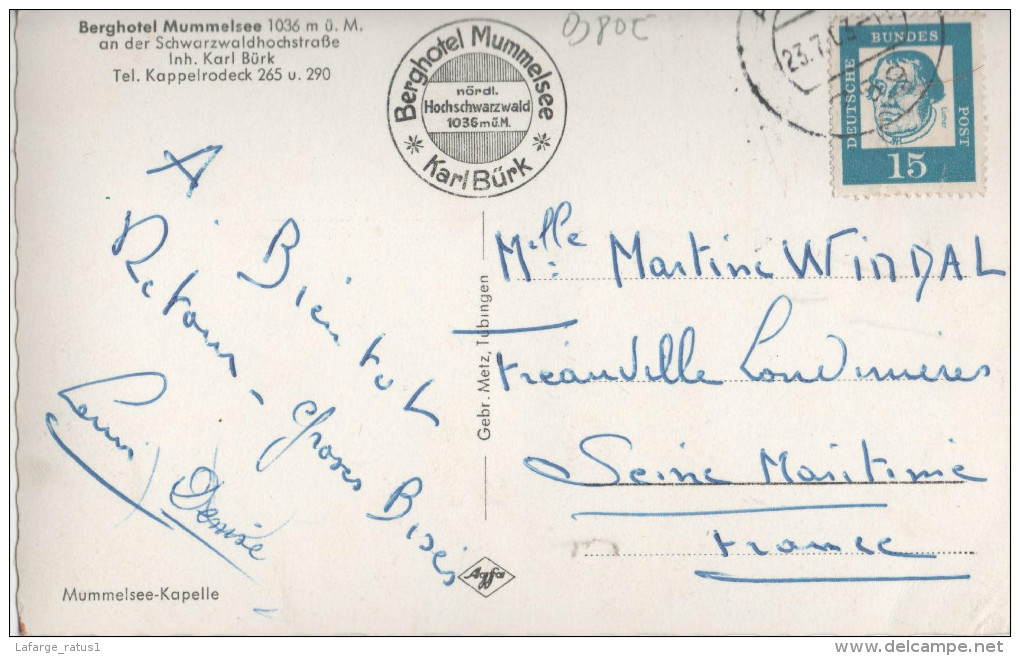 Berghotel Mummelsee 1036 m ü. M.
an der Schwarzwaldhochstraße
Inh. Karl Bürk
Tel. Kappelrodeck 265 u. 290
Berghotel Mummelsee
nördl.
Hochschwarzwald
1036 m ü. M.
* Karl Bürk *
23.7.63
DEUTSCHE
BUNDES
POST
Luther
15
A
Bientot
Retour - Groses Bises
Denise
Mlle Martine WINDAL
Fréauville Londinières
Seine Maritime
France
Gebr. Metz, Tübingen
Agfa
Mummelsee-Kapelle
Lafarge_ratus1
www.delcampe.net